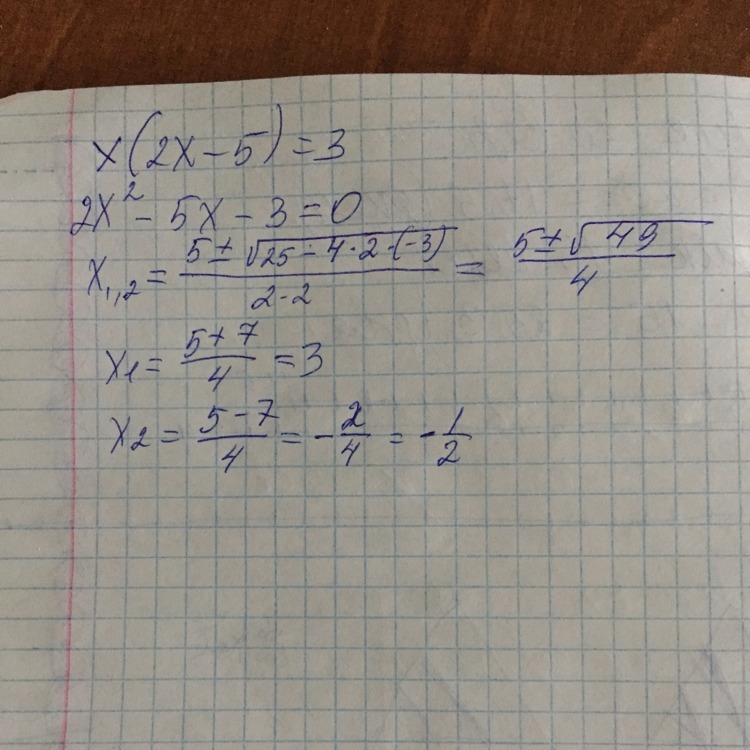 x(2x-5)=3
2x²-5x-3=0
x₁,₂ = (5±√(25-4·2·(-3)))/(2·2) = (5±√49)/4
x1 = (5+7)/4 = 3
x2 = (5-7)/4 = -2/4 = -1/2